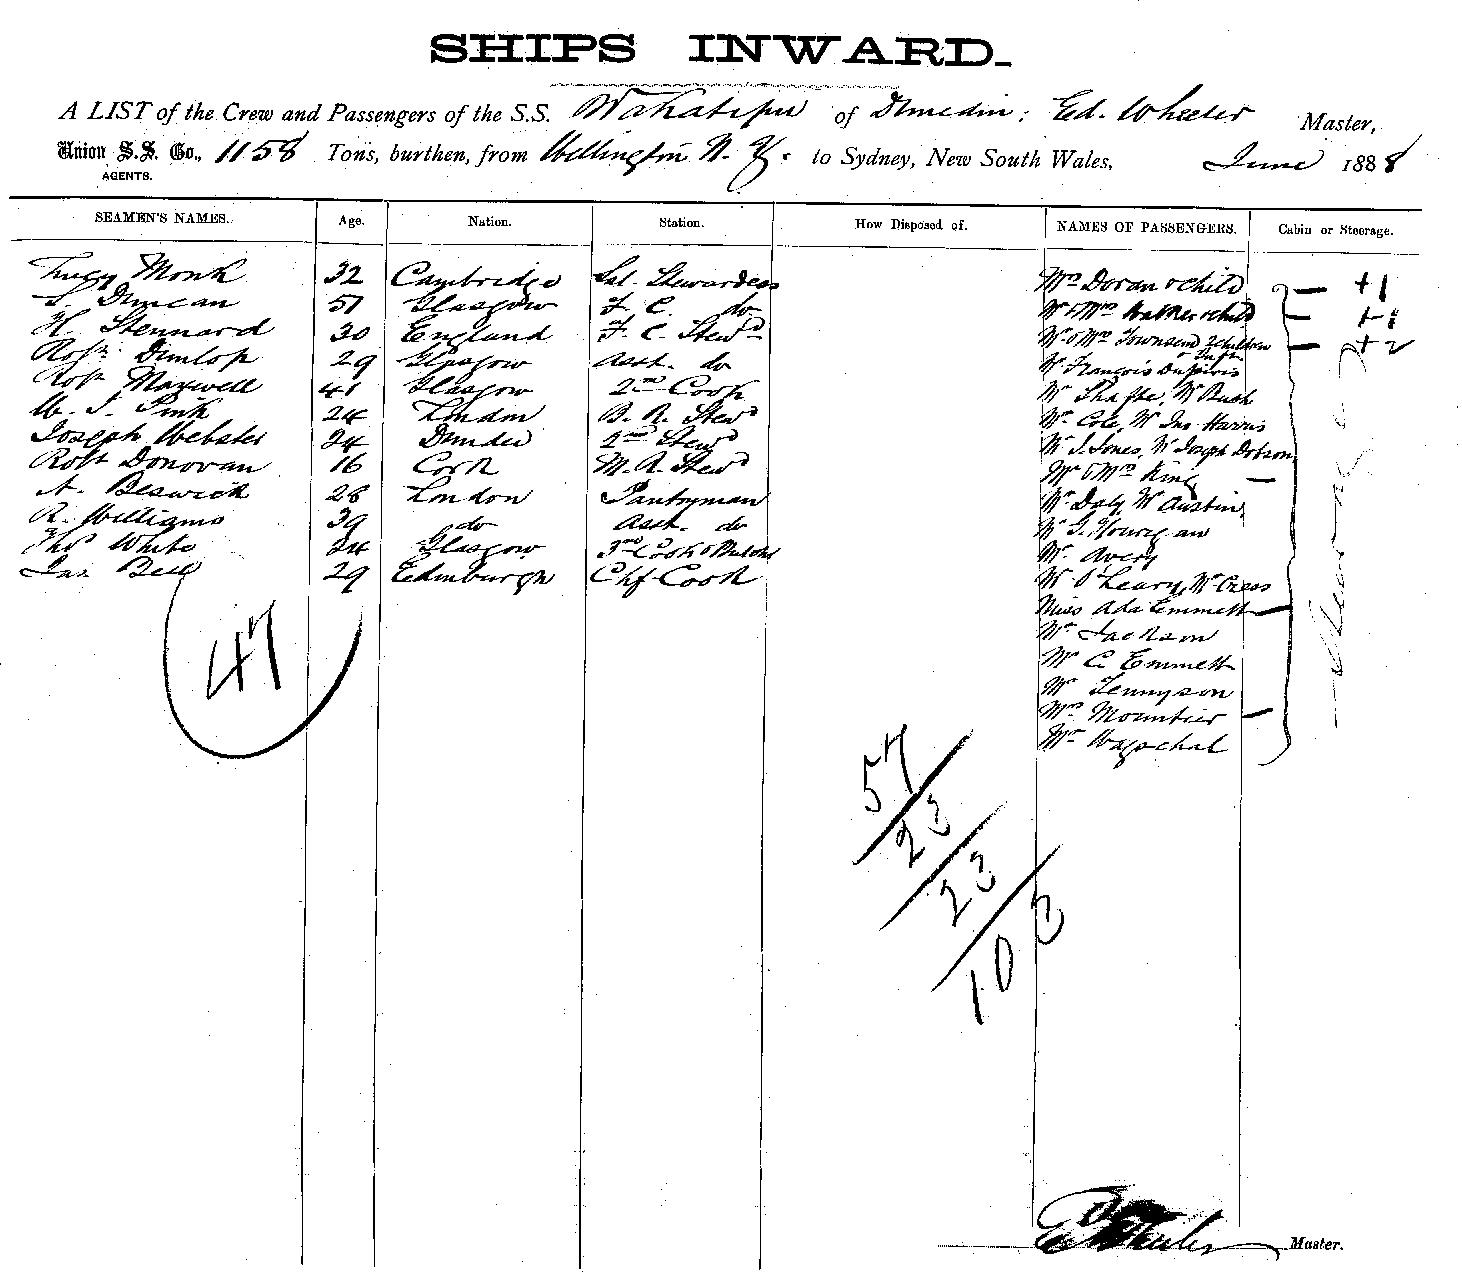 SHIPS INWARD.
A LIST of the Crew and Passengers of the S.S. Wakatipu of Dunedin: Ed. Wheeler Master,
Union S.S. Co., 1158 Tons, burthen, from Wellington N. Z. to Sydney, New South Wales, June 1888
AGENTS.
SEAMEN'S NAMES. Age. Nation. Station. How Disposed of. NAMES OF PASSENGERS. Cabin or Steerage.
Monk 32 Cambridge Sal. Stewardess Mrs Doran & child +1
Duncan 51 Glasgow F. C. do Mr & Mrs Walker & child +1
H. Stennard 30 England F. C. Stewd Mr & Mrs Townsend 2 children +2
Robt. Dunlop 29 Glasgow Asst. do & Inft
Mr François
Robt Maxwell 41 Glasgow 2nd Cook Mr Mr Bush
W. J. Pink 24 London B. R. Stewd Mr Cole, Mr Jno Harris
Joseph Webster 24 Dundee 2nd Stewd Mr J. Jones, Mr Joseph Dobson
Robt Donovan 16 Cork M. R. Stewd Mr & Mrs King
A. Beswick 28 London Pantryman Mr Daly, Mr Austin
R. Williams 39 do Asst. do Mr J. Hourigan
Thos White 24 Glasgow 3rd Cook & Butcher Mr Avery
Jas. Bell 29 Edinburgh Chf Cook Mr O'Leary, Mr Cress
Miss Ada Emmett
47 Mr Jackson
Mr C. Emmett
Mr Tennyson
Mrs Mountier
Mr Wagschal
57
23
23
103
Ed Wheeler Master.